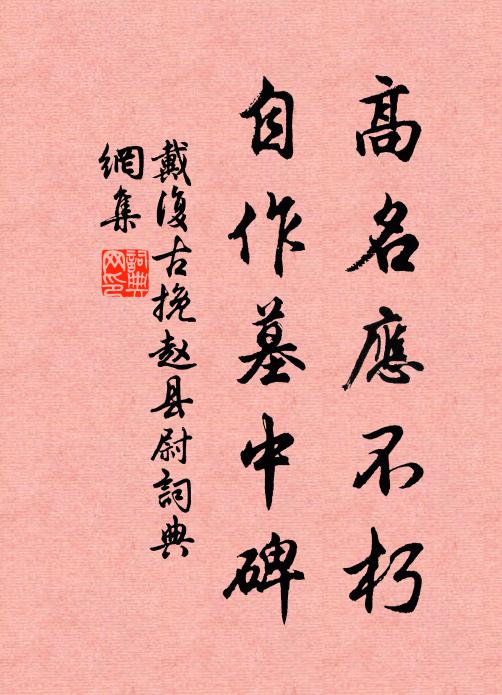 高名應不朽
自作墓中碑
戴復古挽赵县尉詞典
網集
詞典
网印